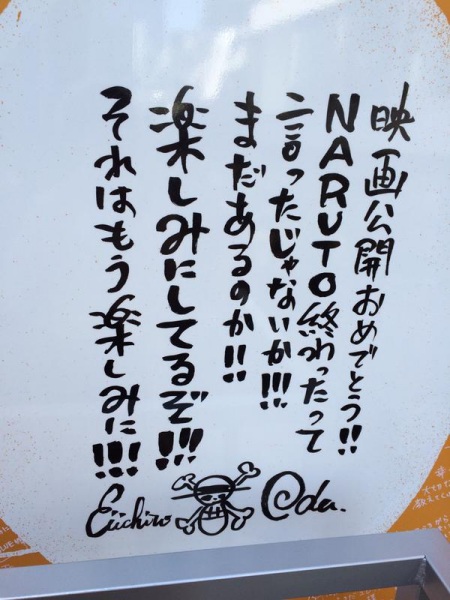 映画公開おめでとう!!
NARUTO終わったって
言ったじゃないか!!!
まだあるのか!!
楽しみにしてるぞ!!!
それはもう楽しみに!!!!
Eiichiro Oda.